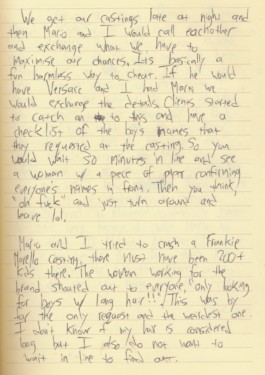 We get our castings late at night and
then Mario and I would call eachother
and exchange what we have to
maximise our chances, its basically a
fun harmless way to cheat. If he would
have Versace and I had Marni we
would exchange the details. Clients started
to catch on to this and have a
checklist of the boys names that
they requested at the casting. So you
would wait 50 minutes in line and see
a woman w/ a piece of paper confirming
everyones names in front. Then you think,
"oh fuck" and just turn around and
leave lol.
Mario and I tried to crash a Frankie
Morello casting, there must have been 200+
kids there. The woman working for the
brand shouted out to everyone, "only looking
for boys w/ long hair!!!" This was by
far the only request and the weirdest one.
I don't know if my hair is considered
long but I also do not want to
wait in line to find out.